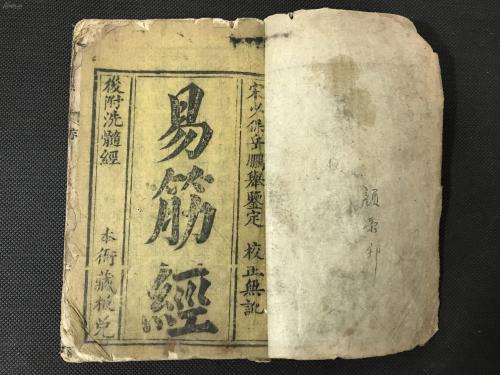 宋少保岳鵬舉鑒定 校正無訛
易筋經
後附洗髓經
本衙藏板兌